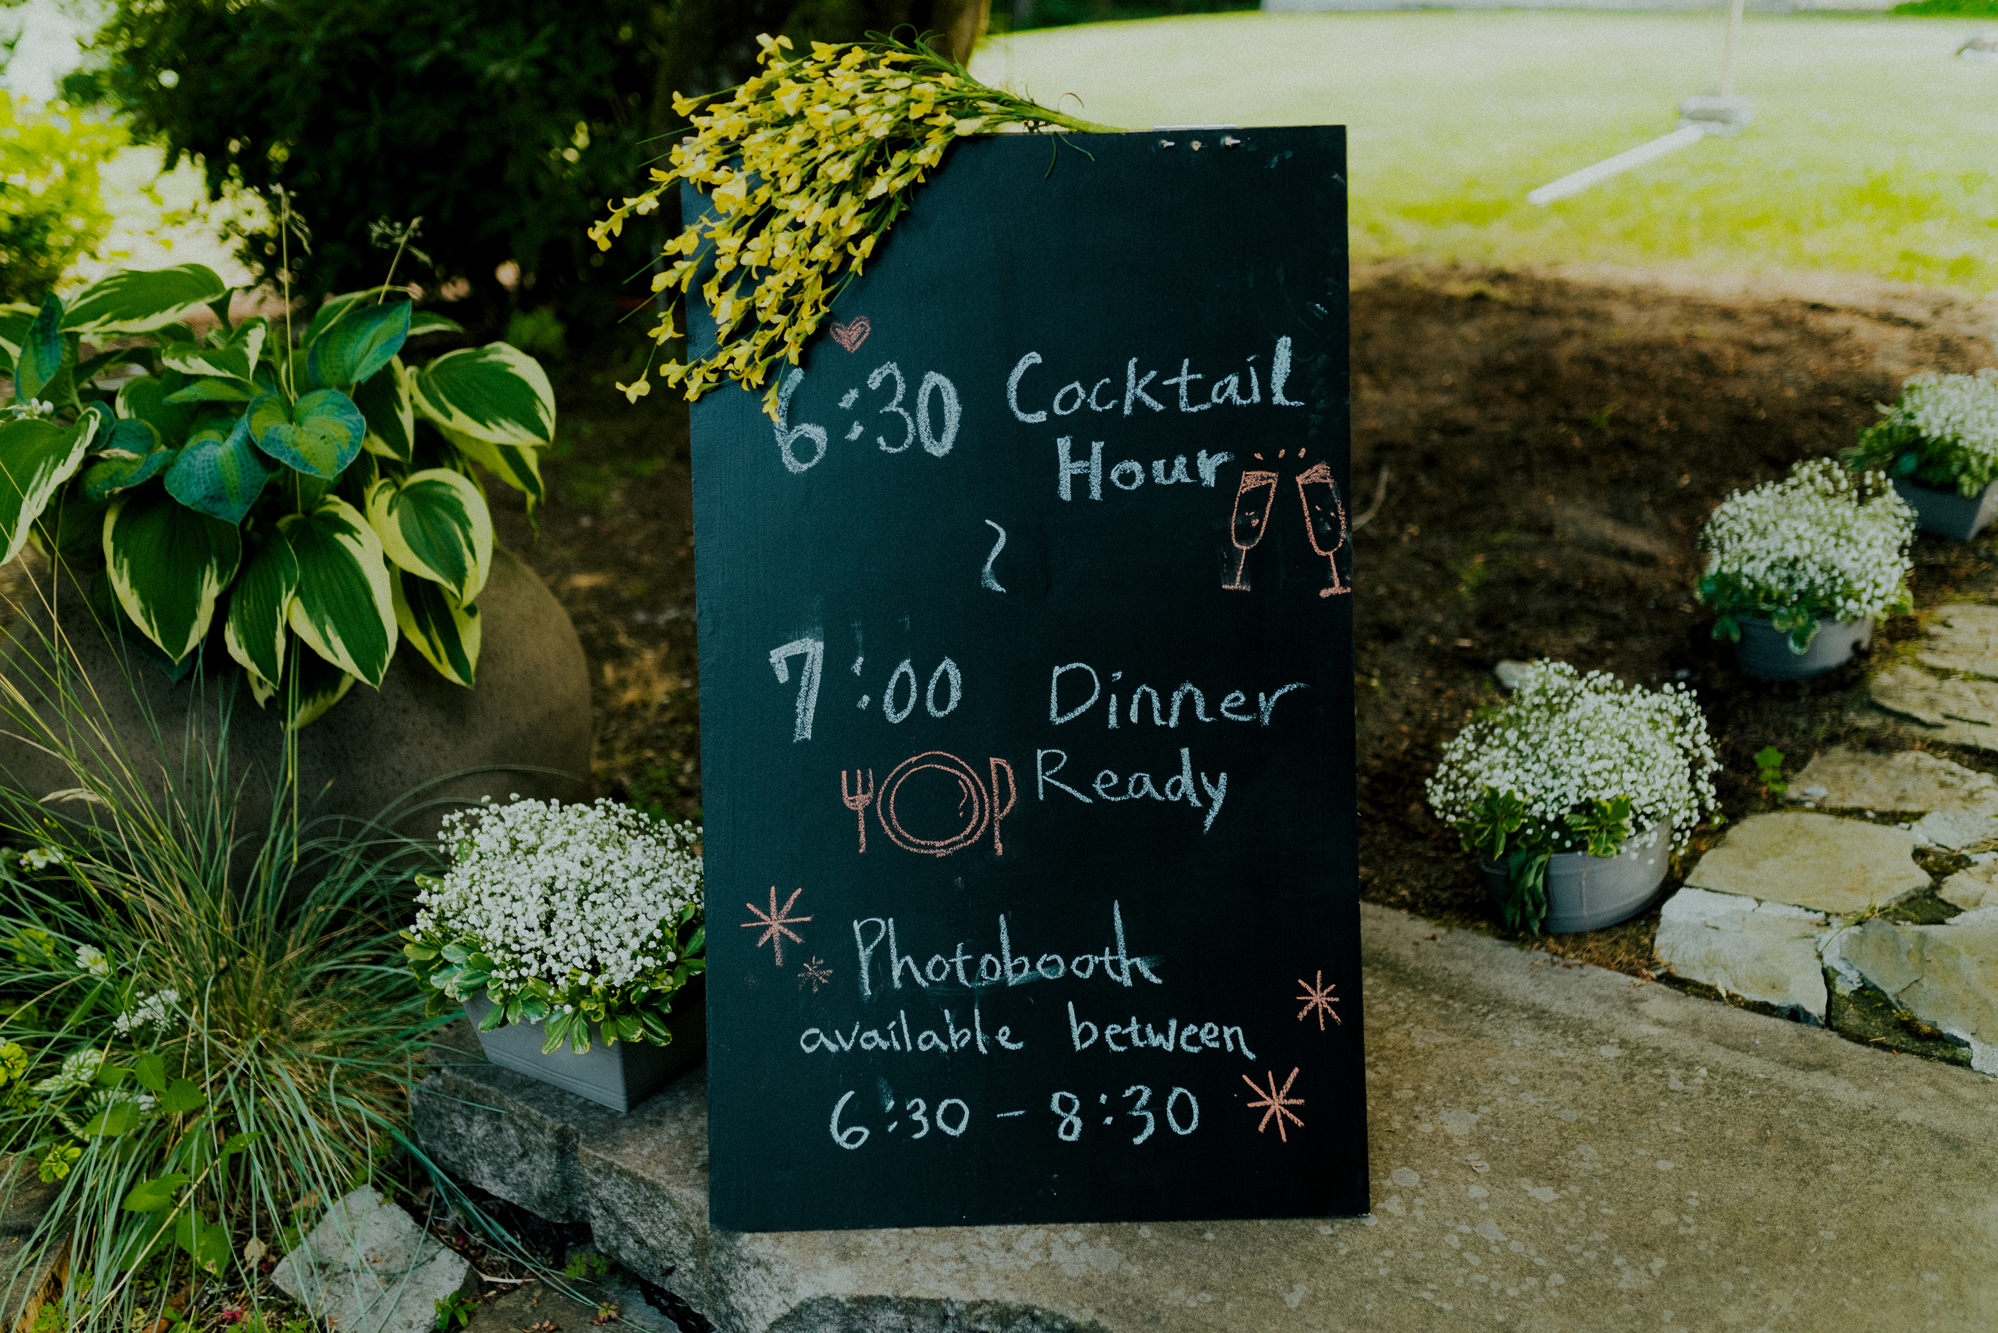 6:30 Cocktail
Hour
~
7:00 Dinner
Ready
Photobooth
available between
6:30 - 8:30